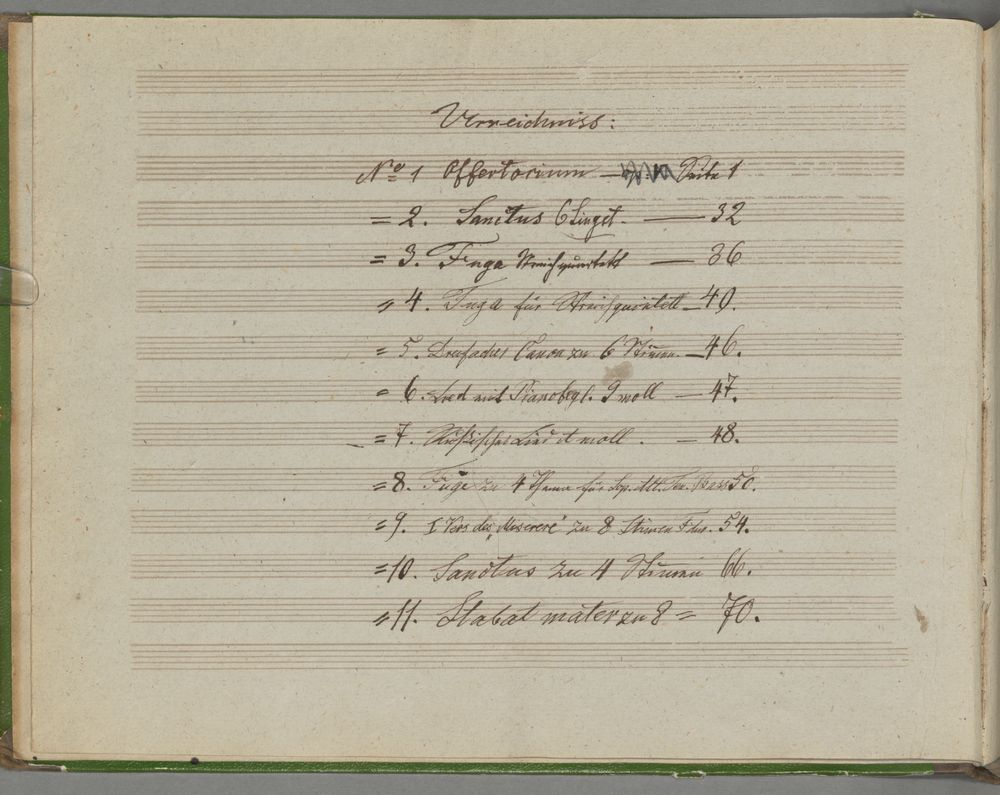 Verzeichniss:
No 1 Offertorium — Seite 1
= 2. Sanctus 6 Singst. — 32
= 3. Fuga Streichquartett — 36
= 4. Fuga für Streichquintett — 40.
= 5. Dreifacher Canon zu 6 Stimen. — 46.
= 6. Lied mit Pianobegl. moll — 47.
= 7. Russisches Lied moll. — 48.
= 8. Fuge zu 4 Them für Sop. Alt. Ten. Bass 50.
= 9. I Vers des „Miserere" zu 8 Stimen 54.
= 10. Sanctus zu 4 Stimen 66.
= 11. Stabat mater zu 8 = 70.